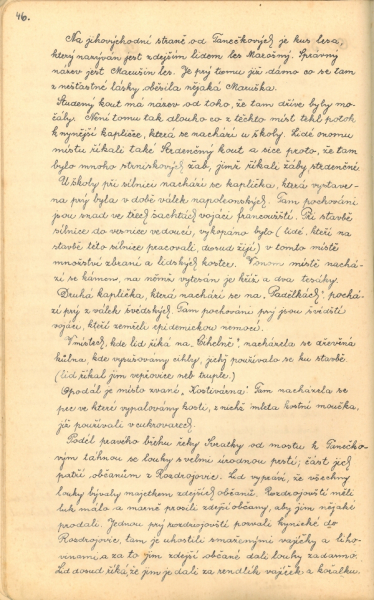 46.
Na jihovýchodní straně od Tanečkových je kus lesa,
který nazýván jest zdejším lidem les Marášný. Správný
název jest Maruším les. Je prý tomu již dávno co se tam
z nešťastné lásky oběsila nějaká Maruška.
Studený kout má název od toho, že tam dříve byly mo-
čály. Není tomu tak dlouho co z těchto míst tekl potok
k nynější kapličce, která se nachází u školy. Lidé onomu
místu říkali také Stedenčný kout a sice proto, že tam
bylo mnoho strniskových žab, jimž říkali žáby stedenčné.
U školy při silnici nachází se kaplička, která vystave-
na prý byla v době válek napoleonských. Tam pochováni
jsou snad ve třech šachtách vojáci francouzští. Při stavbě
silnice do vesnice vedoucí, vykopáno bylo (lidé, kteří na
stavbě této silnice pracovali, dosud žijí) v tomto místě
množství zbraní a lidských koster. V onom místě nachá-
zí se kámen, na němž vytesán je kříž a dva tesáky.
Druhá kaplička, která nachází se na "Padělkách", pochá-
zí prý z válek švédských. Tam pochováni prý jsou švédští
vojáci, kteří zemřeli epidemickou nemocí.
V místech, kde lid říká na "Cihelně", nacházela se dřevěná
kůlna, kde vysušovány cihly, jichž používalo se ku stavbě
(lid říkal jim vepřovice neb truple.)
Opodál je místo zvané, "Kostivárna". Tam nacházela se
pec ve které vypalovány kosti, z nichž mleta kostní moučka,
již používali v cukrovarech.
Podél pravého břehu řeky Svratky od mostu k Tanečko-
vým táhnou se louky s velmi úrodnou prstí; část jich
patří občanům z Rozdrojovic. Lid vypráví, že všechny
louky bývaly majetkem zdejších občanů. Rozdrojovští měli
luk málo a marně prosili zdejší občany, aby jim nějaké
prodali. Jednou prý rozdrojovští pozvali kynické do
Rozdrojovic, tam je uhostili smaženými vajíčky a liho-
vinami a za to jim zdejší občané dali louky zadarmo.
Lid dosud říká, že jim je dali za rendlík vajíček a kořalku.